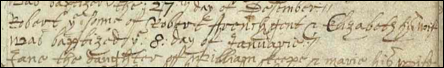 was baptized the: 27 day of December
Robert ye sonne of Robert ffrench gent & Elizabeth his wife
was baptized ye 8: day of Januarie
Jane the daughter of William & marie his wife